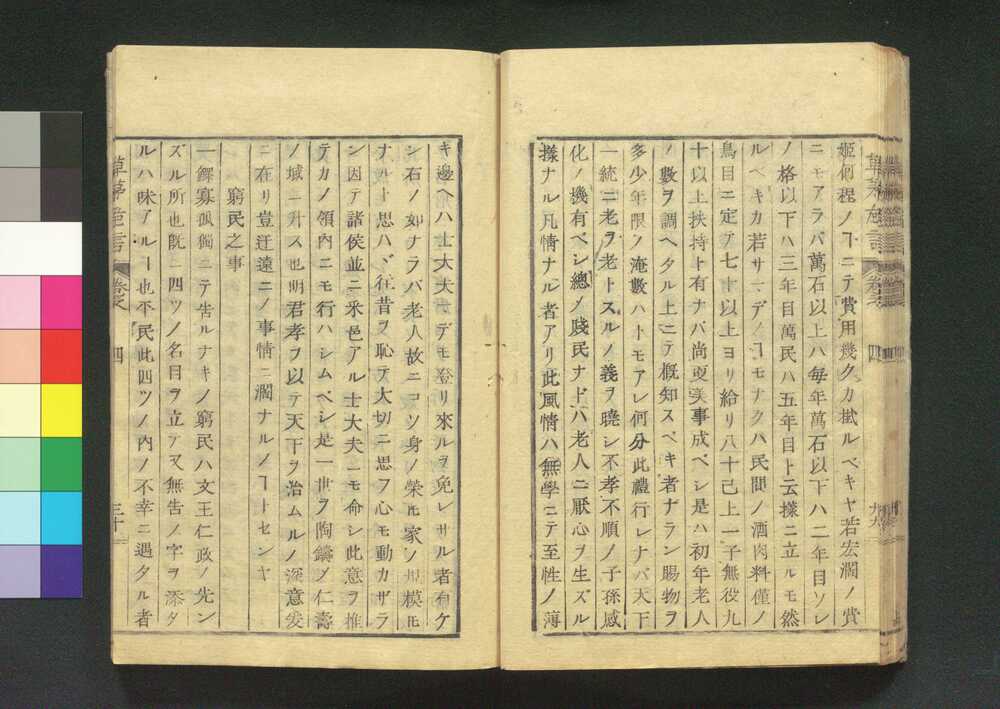 姫何程ノヿニテ費用幾久カ掛ルベキヤ若宏濶ノ賞
ニモアラバ萬石以上ハ毎年萬石以下ハ二年目ソレ
ノ格以下ハ三年目萬民ハ五年目ト云樣ニ立ルモ然
ルベキカ若サ一デノヿモナクハ民間ノ酒肉料僅ノ
鳥目ニ定テ七十以上ヨリ給リ八十己上一子無役九
十以上扶持ト有ナバ尚更美事成ベシ是ハ初年老人
ノ數ヲ調ヘタル上ニテ概知スベキ者ナラン賜物ヲ
多少年限ノ淹數ハトモアレ何分此禮行レナバ天下
一統ニ老ヲ老トスルノ義ヲ曉シ不孝不順ノ子孫感
化ノ機有ベシ總ノ賤民ナドハ老人ニ厭心ヲ生ズル
樣ナル凡情ナル者アリ此風情ハ無學ニテ至性ノ薄
キ邊ヘハ士大夫デモ登リ來ルヲ免レサル者有ケ
シ石ノ如ナラバ老人故ニコソ身ノ榮モ家ノ規模モ
ナルト思ハヾ往昔ヲ恥テ大切ニ思フ心モ動カザラ
ン因テ諸侯並ニ釆邑アル士大夫ニモ命シ此意ヲ推
テカノ領内ニモ行ハシムベシ是一世ヲ陶鑄メ仁壽
ノ域ニ升ス也明君孝ヲ以テ天下ヲ治ムルノ深意爰
ニ在リ豈迂遠ニノ事情ニ濶ナルノヿトセンヤ
窮民之事
一鰥寡孤獨ニテ告ルナキノ窮民ハ文王仁政ノ先ン
ズル所也既ニ四ツノ名目ヲ立テ又無告ノ字ヲ添タ
ルハ味アルヿ也不民此四ツノ内ノ不幸ニ遇タル者
草茅危言 卷之 四 三十